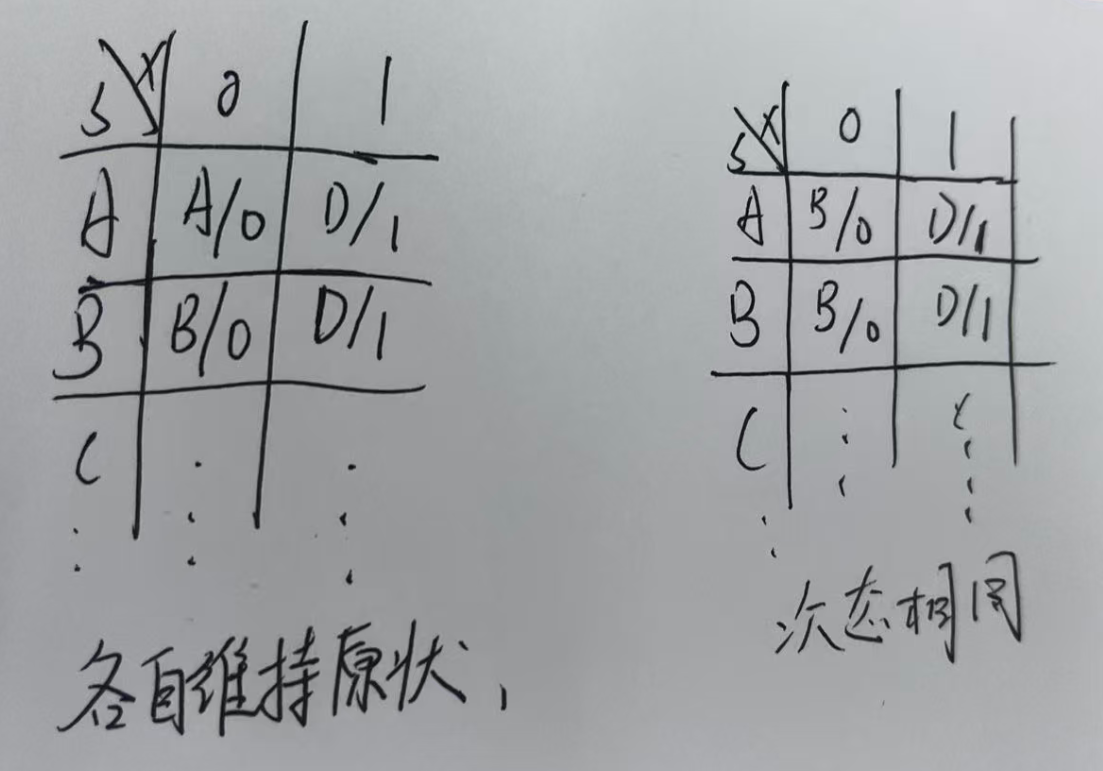 S X 0 1
A A/0 D/1
B B/0 D/1
C
各自维持原状,
S X 0 1
A B/0 D/1
B B/0 D/1
C
次态相同